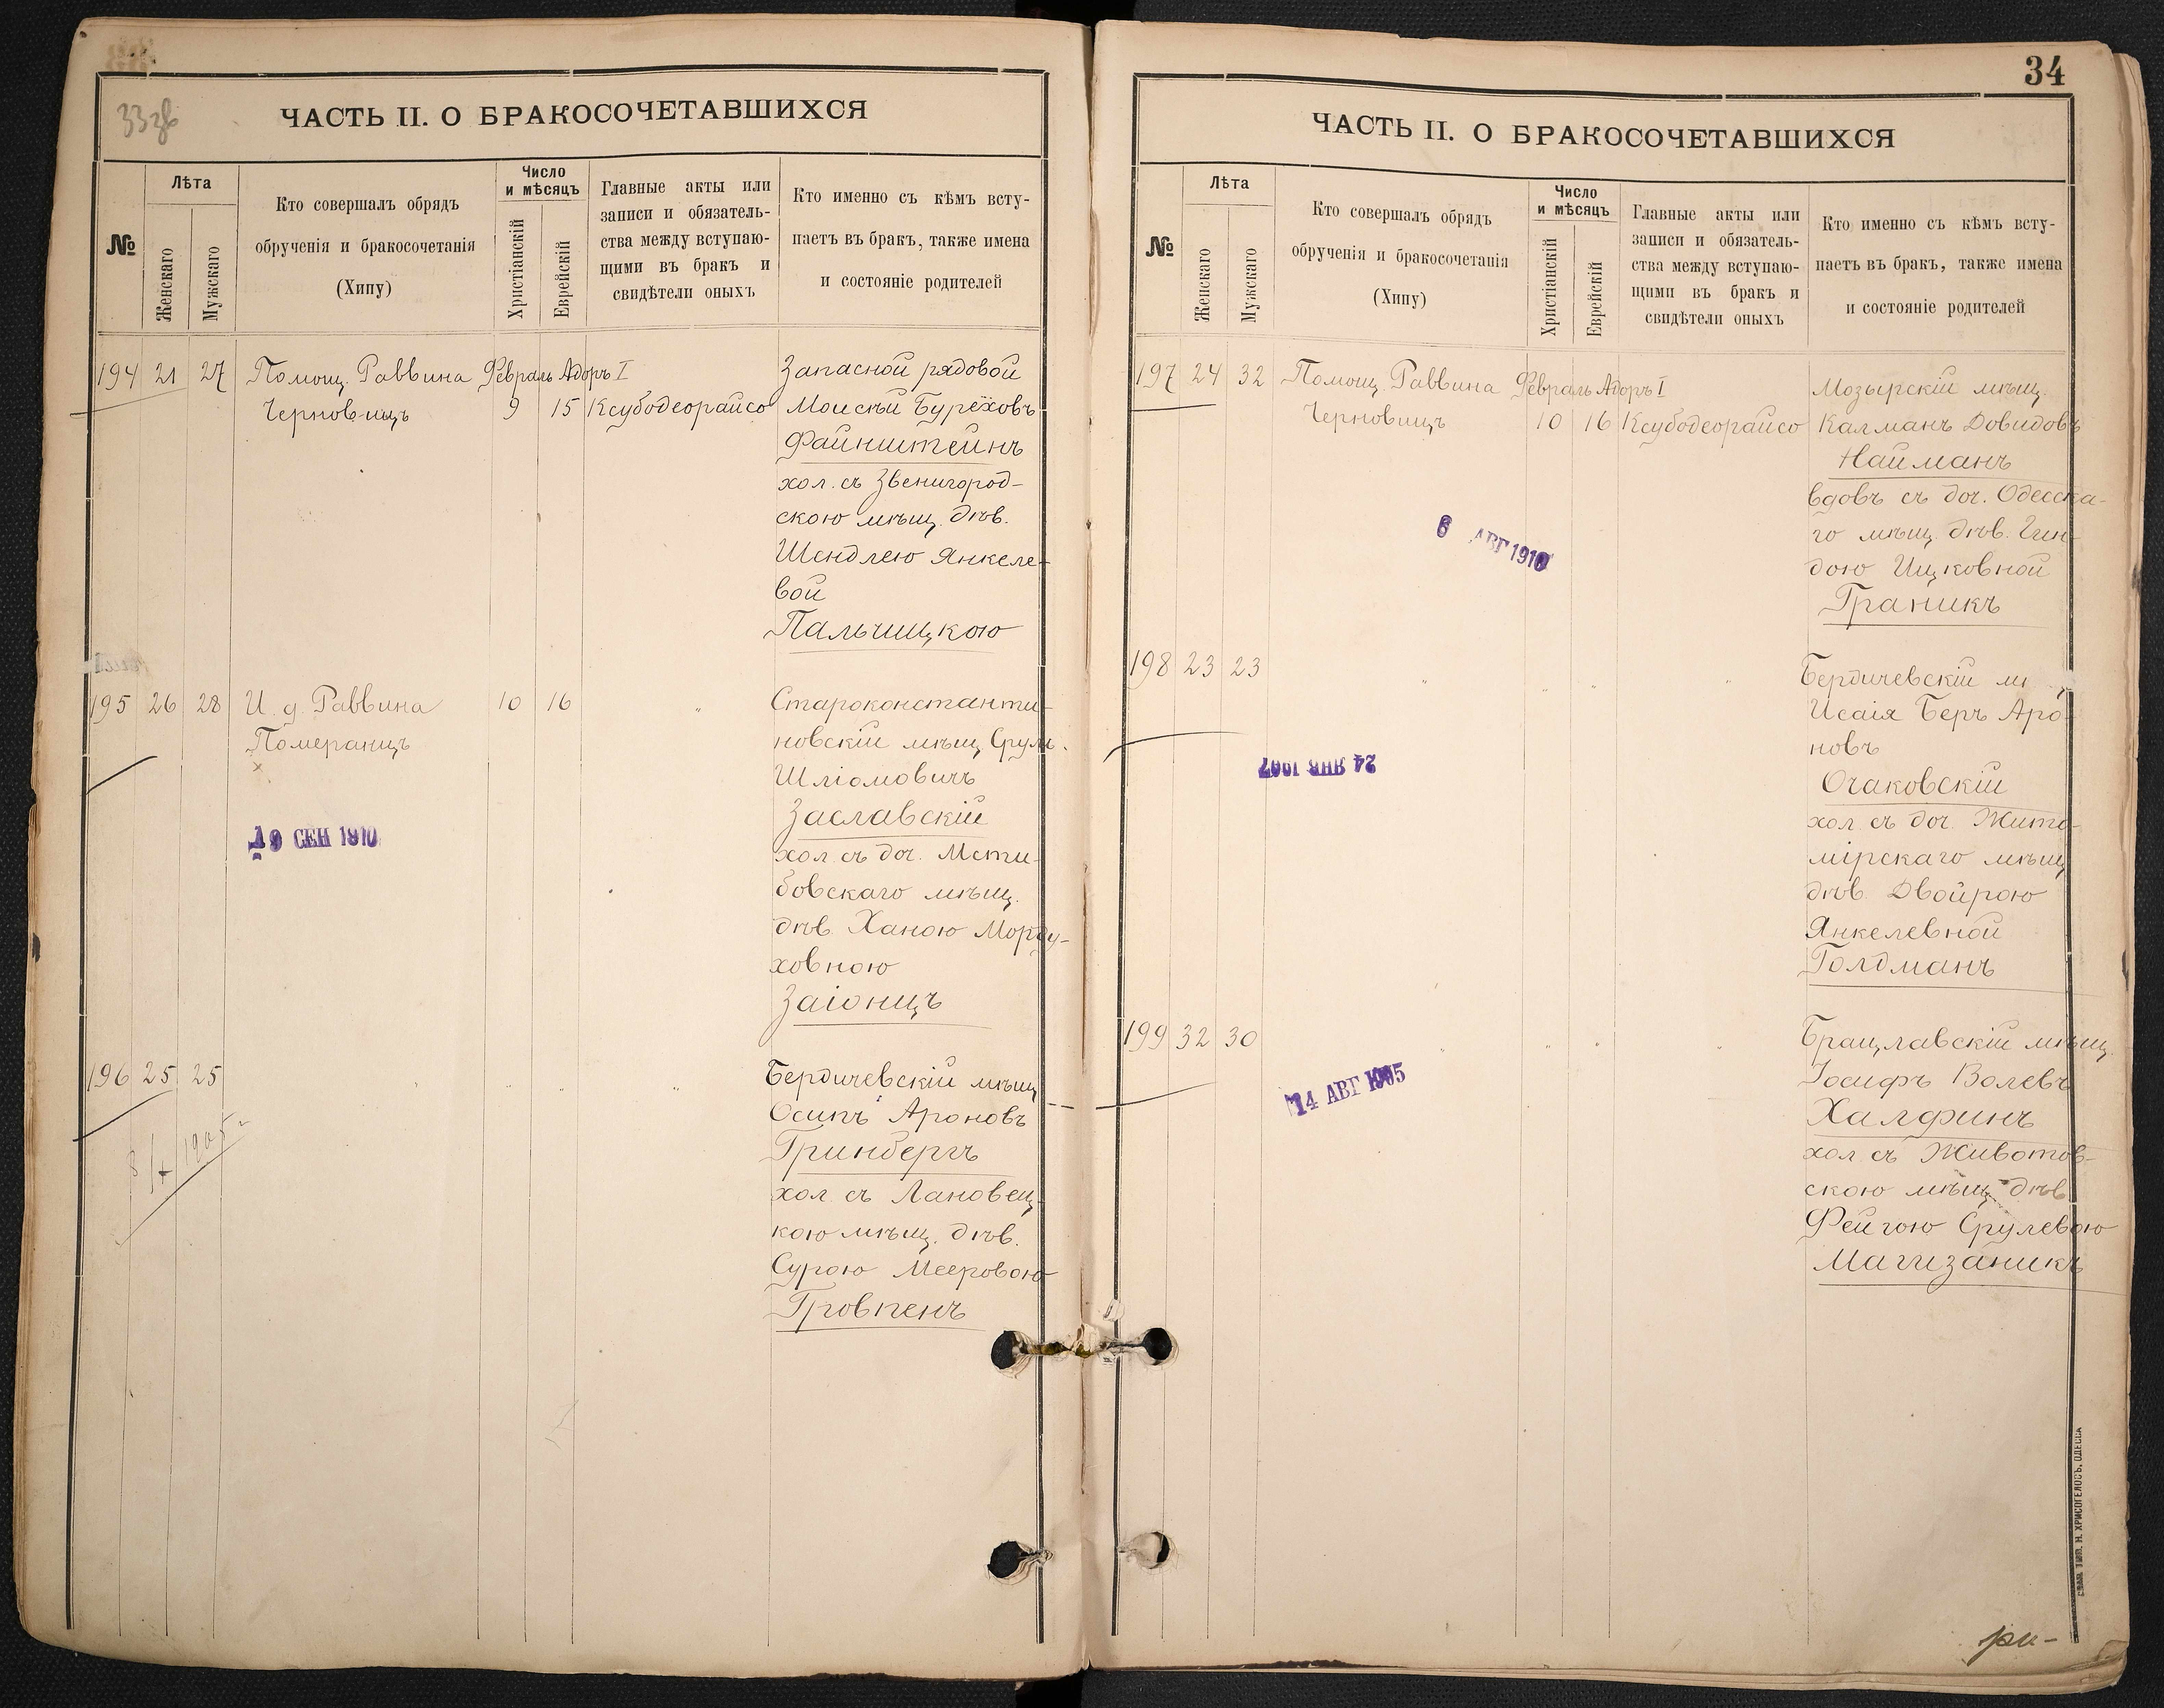 33 зв
ЧАСТЬ II. О БРАКОСОЧЕТАВШИХСЯ
№
Лѣта
Женскаго
Мужскаго
Кто совершалъ обрядъ
обрученія и бракосочетанія
(Хипу)
Число
и мѣсяцъ
Христіанскій
Еврейскій
Главные акты или
записи и обязатель-
ства между вступаю-
щими въ бракъ и
свидѣтели оныхъ
Кто именно съ кѣмъ всту-
паетъ въ бракъ, также имена
и состояніе родителей
194 21 27 Помощ. Раввина Февраль Адоръ I
Черновицъ 9 15 Ксубодеорайсо
Запасной рядовой
Моисѣй Бурёховъ
Файнштейнъ
хол. съ Звенигород-
скою мѣщ. дѣв.
Шендлею Янкеле-
вой
Пальчицкою
195 26 28 И. д. Раввина 10 16 "
Померанцъ
19 СЕН 1910
Староконстанти-
новскій мѣщ. Сруль
Шліомовичъ
Заславскій
хол. съ доч. Мсти-
бовскаго мѣщ.
дѣв. Ханою Морду-
ховною
Заіонцъ
196 25 25 " " "
1905
Бердичевскій мѣщ
Осипъ Ароновъ
Гринбергъ
хол. съ Лановец-
кою мѣщ. дѣв.
Сурою Мееровою
Гровпенъ
34
ЧАСТЬ II. О БРАКОСОЧЕТАВШИХСЯ
№
Лѣта
Женскаго
Мужскаго
Кто совершалъ обрядъ
обрученія и бракосочетанія
(Хипу)
Число
и мѣсяцъ
Христіанскій
Еврейскій
Главные акты или
записи и обязатель-
ства между вступаю-
щими въ бракъ и
свидѣтели оныхъ
Кто именно съ кѣмъ всту-
паетъ въ бракъ, также имена
и состояніе родителей
197 24 32 Помощ. Раввина Февраль Адоръ I
Черновицъ 10 16 Ксубодеорайсо
6 АВГ 1910
Мозырскій мѣщ.
Калманъ Довидовъ
Найманъ
вдовъ съ доч. Одесска-
го мѣщ. дѣв. Гин-
дою Ицковной
Граникъ
198 23 23 " " " "
24 ЯНВ 1907
Бердичевскій
Исаія Беръ Аро-
новъ
Очаковскій
хол. съ доч. Жито-
мірскаго мѣщ
дѣв. Двойрою
Янкелевной
Голдманъ
199 32 30 " " " "
14 АВГ 1905
Брацлавскій мѣщ.
Іосифъ Волевъ
Халфинъ
хол. съ Животов-
скою мѣщ. дѣв.
Фейгою Срулевою
Магизаникъ
ТИП. Н. ХРИСОГЕЛОСЪ, ОДЕССА
ри-